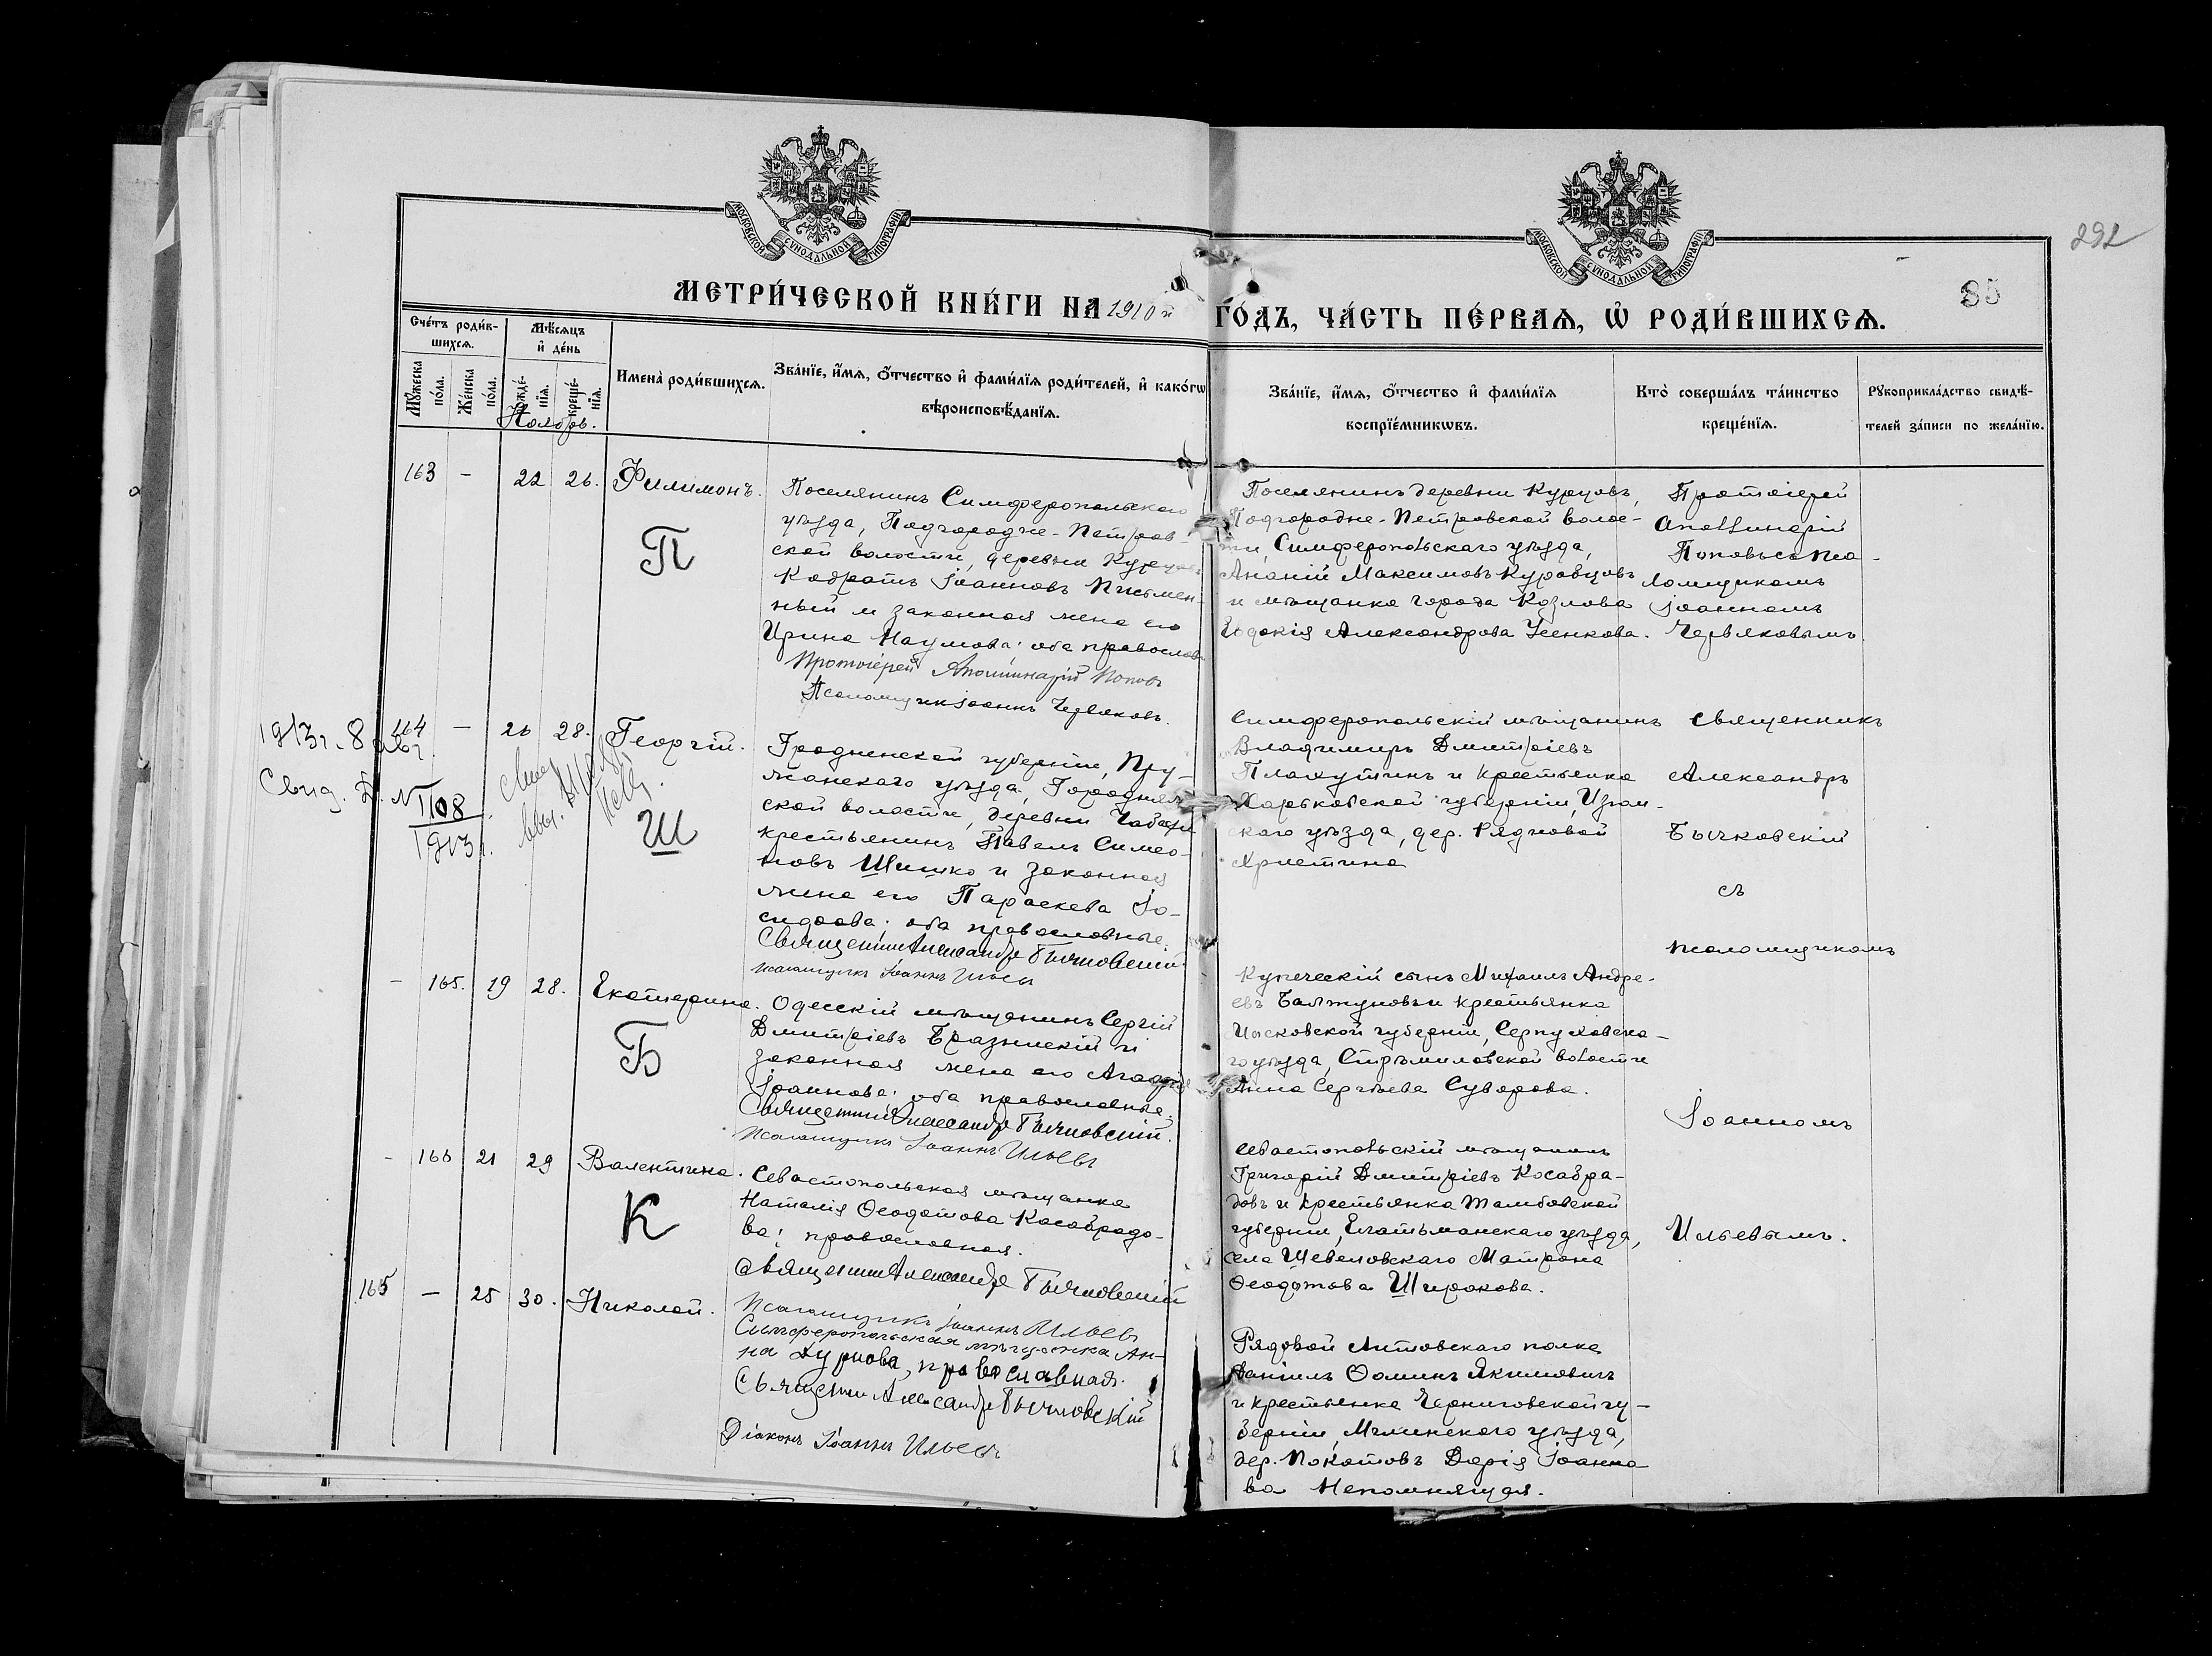 МОСКОВСКОЙ СѴНОДАЛЬНОЙ ТИПОГРАФІИ
МОСКОВСКОЙ СѴНОДАЛЬНОЙ ТИПОГРАФІИ
292
85
МЕТРИ́ЧЕСКОЙ КНИ́ГИ НА 1910 й ГО́ДЪ, ЧА́СТЬ ПЕ́РВАѦ, Ѡ҆ РОДИ́ВШИХСѦ.
Сче́тъ роди́в-
шихсѧ.
Мꙋ́жеска по́ла.
Же́нска по́ла.
Мѣ́сѧцъ
и҆ де́нь
рожде́-
нїѧ.
креще́-
нїѧ.
Имена̀ роди́вшихсѧ.
Зва́нїе, и҆́мѧ, ѻ҆́тчество и҆ фами́лїѧ роди́телей, и҆ како́гѡ
вѣроисповѣ́данїѧ.
Зва́нїе, и҆́мѧ, ѻ҆́тчество и҆ фами́лїѧ
воспрїе́мникѡвъ.
Кто̀ соверша́лъ та́инство
креще́нїѧ.
Рꙋкоприкла́дство свидѣ́-
телей за́писи по жела́нїю.
Ноябрь.
163 - 22 26. Филимонъ.
П
Поселянинъ Симферопольскаго
уѣзда, Подгородне-Петров-
ской волости, деревни Курцовъ
Кодратъ Іоанновъ Письмен-
ный и законная жена его
Ирина Наумова; оба православ.
Протоіерей Аполлинарій Поповъ
Псаломщикъ Іоаннъ Червяковъ.
Поселянинъ деревни Курцовъ,
Подгородне-Петровской волос-
ти, Симферопольскаго уѣзда,
Ананій Максимовъ Куровцовъ
и мѣщанка города Козлова
Евдокія Александрова Усенкова.
Протоіерей
Аполлинарій
Поповъ съ пса-
ломщикомъ
Іоанномъ
Червяковымъ.
1913 г. 8
Свид. Д. №
1108
1913 г.
164 - 26 28. Георгій.
Ш
Гродненской губерніи, Пру-
жанскаго уѣзда, Городняк
ской волости, деревни
крестьянинъ Павелъ Симео-
новъ Шишко и законная
жена его Параскева Іо-
сидоова; оба православные.
Священникъ Александръ Бычковскій.
Псаломщикъ Іоаннъ Ильевъ
Симферопольскій мѣщанинъ
Владимиръ Дмитріевъ
Плахутинъ и крестьянка
Харьковской губерніи, Изюм-
скаго уѣзда, дер. Рядновой
Христина
Священникъ
Александръ
Бычковскій
съ
псаломщикомъ
Іоанномъ
Ильевымъ.
- 165. 19 28. Екатерина.
Б
Одесскій мѣщанинъ Сергій
Дмитріевъ Бразинскій и
законная жена его Агафія
Іоаннова; оба православные.
Священникъ Александръ Бычковскій.
Псаломщикъ Іоаннъ Ильевъ
Купеческій сынъ Михаилъ Андре-
евъ Балжуновъ и крестьянка
Московской губерніи, Серпуховска-
го уѣзда, Стрѣмиловской волости
Анна Сергѣева Суворова.
- 166 21 29 Валентина.
К
Севастопольская мѣщанка
Наталія Ѳеодотова Косаврадо-
ва; православная.
Священникъ Александръ Бычковскій
Псаломщикъ Іоаннъ Ильевъ
Севастопольскій мѣщанинъ
Григорій Дмитріевъ Косавра-
довъ и крестьянка Тамбовской
губерніи, Елатьманскаго уѣзда,
села Шевеловскаго Матрона
Ѳеодотова Широкова.
165 - 25 30. Николай.
Симферопольская мѣщанка Ан-
на Дурнова, православная.
Священникъ Александръ Бычковскій
Діаконъ Іоаннъ Ильевъ
Рядовой Литовскаго полка
Даніилъ Ѳоминъ Якимовичъ
и крестьянка Черниговской гу-
берніи, Мглинскаго уѣзда,
дер. Покотовъ Дарія Іоанно
ва Непомнящая.